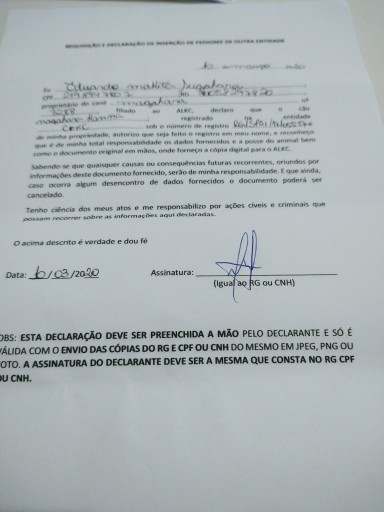 REQUISIÇÃO E DECLARAÇÃO DE INSERÇÃO DE PEDIGREE DE OUTRA ENTIDADE
Eu Eduardo
CPF RG
proprietário do canil nº
filiado ao ALKC, declaro que o cão
registrado na entidade
CBKC sob o número de registro
de minha propriedade, autorizo que seja feito o registro em meu nome, e reconheço
que é de minha total responsabilidade os dados fornecidos e a posse do animal bem
como o documento original em mãos, onde forneço a cópia digital para o ALKC.
Sabendo se que quaisquer causas ou consequências futuras recorrentes, oriundos por
informações deste documento fornecido, serão de minha responsabilidade. E que ainda,
caso ocorra algum desencontro de dados fornecidos o documento poderá ser
cancelado.
Tenho ciência dos meus atos e me responsabilizo por ações cíveis e criminais que
possam recorrer sobre as informações aqui declaradas.
O acima descrito é verdade e dou fé
Data: /03/2020 Assinatura:
(Igual ao RG ou CNH)
OBS: ESTA DECLARAÇÃO DEVE SER PREENCHIDA A MÃO PELO DECLARANTE E SÓ É
VÁLIDA COM O ENVIO DAS CÓPIAS DO RG E CPF OU CNH DO MESMO EM JPEG, PNG OU
FOTO. A ASSINATURA DO DECLARANTE DEVE SER A MESMA QUE CONSTA NO RG CPF
OU CNH.